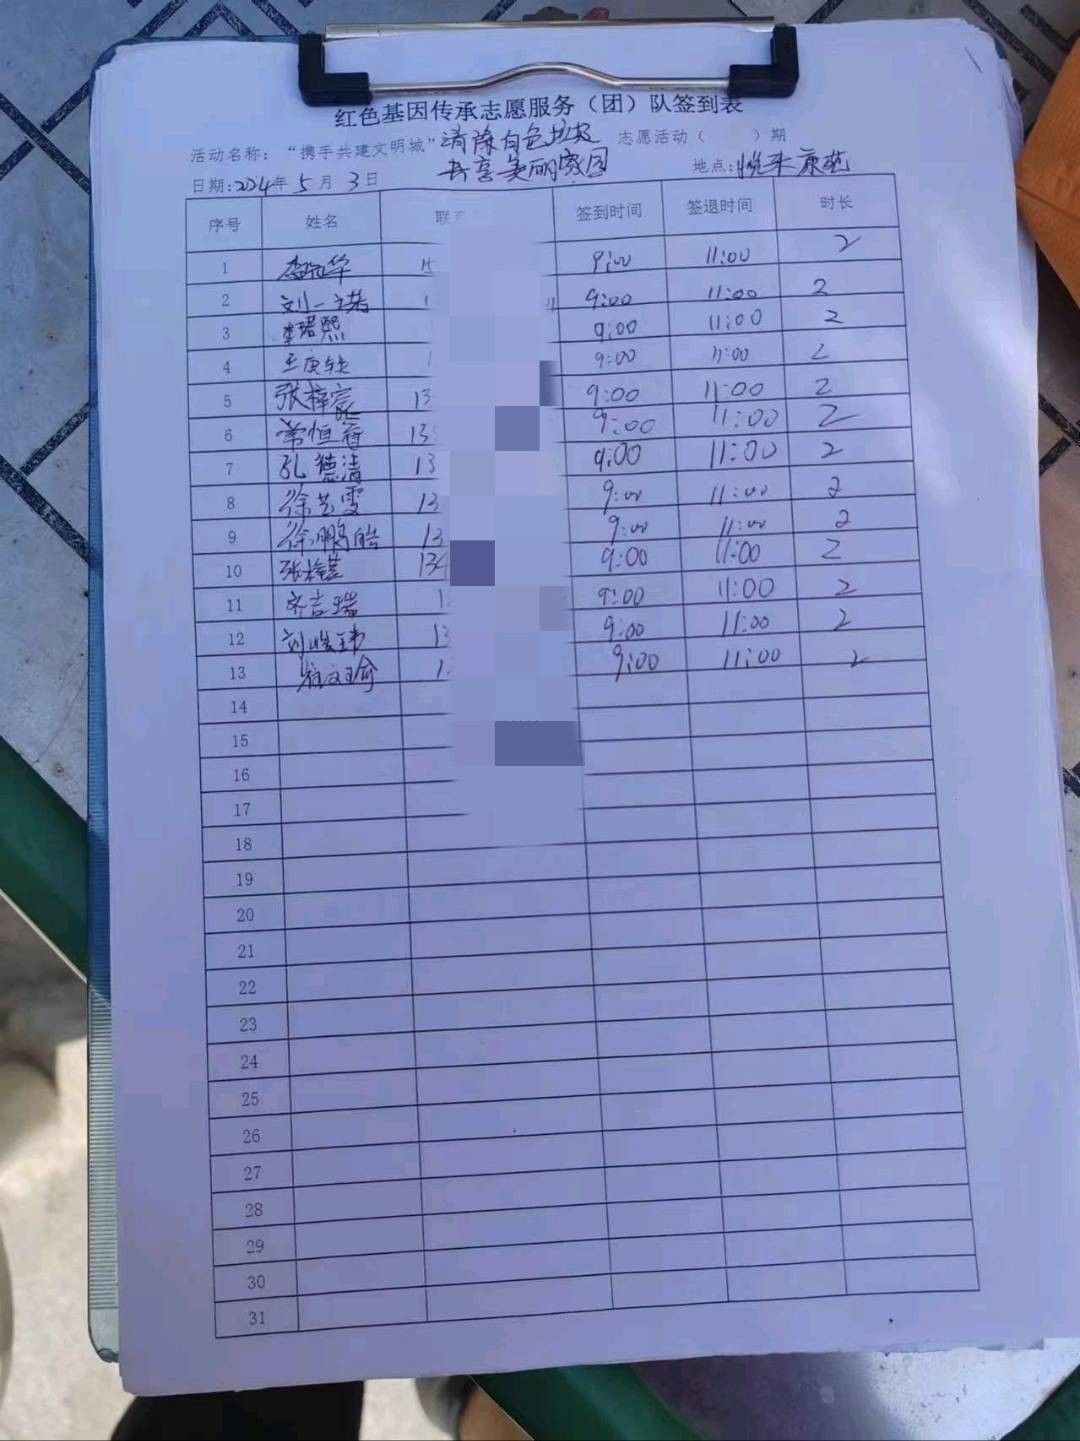 红色基因传承志愿服务（团）队签到表
活动名称：“携手共建文明城”清除白色垃圾 志愿活动（ ）期
共享美丽家园
日期:2024年5月3日 地点:悦来康苑
序号 姓名 联系 签到时间 签退时间 时长
1 9:00 11:00 2
2 刘一诺 9:00 11:00 2
3 李珺熙 9:00 11:00 2
4 9:00 11:00 2
5 张梓豪 13 9:00 11:00 2
6 常恒睿 13 9:00 11:00 2
7 孔德清 13 9:00 11:00 2
8 徐艺雯 13 9:00 11:00 2
9 徐鹏皓 13 9:00 11:00 2
10 134 9:00 11:00 2
11 齐吉瑞 9:00 11:00 2
12 刘皓玮 13 9:00 11:00 2
13 9:00 11:00 2
14
15
16
17
18
19
20
21
22
23
24
25
26
27
28
29
30
31